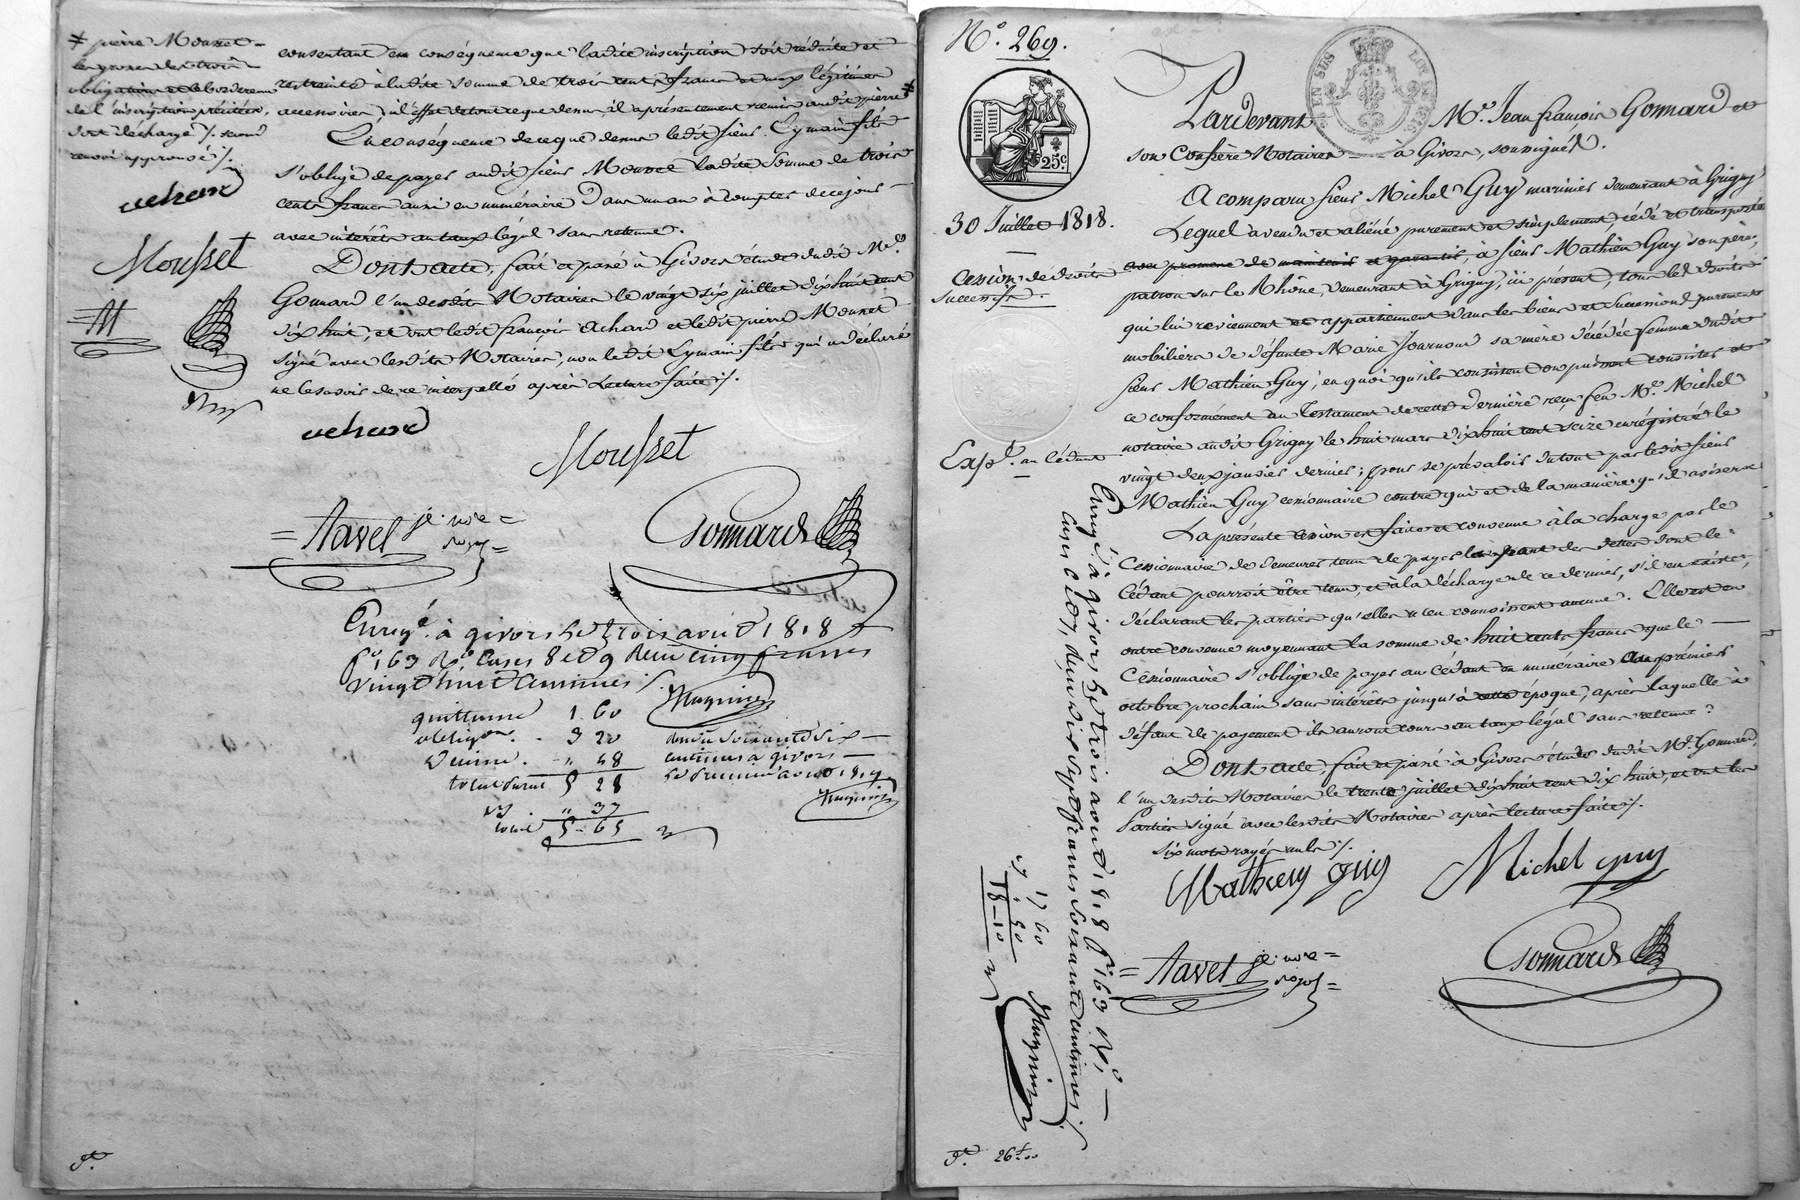 * pierre Mousset
les grosses des trois
obligations et le bordereau
de l'inscription précitée,
dont décharge /. second
renvoi approuvé /.
achard
Mousset
consentant en conséquence que ladite inscription soit réduite et
restrainte à ladite somme de trois cents francs et aux légitimes
accessoires, à l'effet de tout ce que dessus, il a présentement remis audit pierre *
En conséquence de ce que dessus ledit sieur Eymain fils
s'oblige de payer audit sieur Mousset ladite somme de trois
cents francs aussi en numéraire Dans un an à compter de ce jour
avec intérêts au taux légal sans retenue.
Dont acte, fait et passé à Givors étude dudit Me.
Gonnard l'un desdits Notaires le vingt six juillet dix huit cent
dix huit, et ont ledit françois Achard et ledit pierre Mousset
signé avec lesdits Notaires, non ledit Eymain fils qui a déclaré
ne le savoir de ce interpellé après Lecture faite /.
achard
Mousset
= Tavel je. nore =
Gonnard
Enregé. à givors le trois aout 1818
fo. 163 Ro. Cases 8 et 9 Reçu cinq francs
vingt huit centimes /.
quittance 1. 60
obligon. 3 20
Dixime. " 48
total 5 28
" 37
total 5 - 65
Reçu soixante six
centimes à givors
No. 269.
25c.
30 Juillet 1818.
Cession de droits
successifs.
Expd. au cédant
Pardevant Me. Jean françois Gonnard et
son Confrère Notaires à Givors, soussignés.
A comparu sieur Michel Guy marinier demeurant à Grigny
Lequel a vendu et aliéné purement et simplement, cédé et transporté
avec promesse de maintenir et garantir, à sieur Mathieu Guy son père,
patron sur le Rhône, demeurant à Grigny, ici présent, tous les droits
qui lui reviennent et appartiennent dans les biens et succession purement
mobiliers de défunte Marie Journoud sa mère décédée femme dudit
sieur Mathieu Guy, en quoi qu'ils consistent ou puissent consister et
ce conformément au Testament de cette dernière reçu feu Me. Michel
notaire audit Grigny le huit mars dix huit cent seize enregistré le
vingt deux janvier dernier; pour se prévaloir du tout par ledit sieur
Mathieu Guy cessionnaire contre qui et de la manière qu'il avisera
La présente cession est faite et convenue à la charge par le
Cessionnaire de demeurer tenu de payer les dettes dont le
Cédant pourroit être tenu, et à la décharge de ce dernier, s'il en existe,
déclarant les parties qu'elles n'en connoissent aucune. Elle est en
outre convenue moyennant la somme de huit cents francs que le
Cessionnaire s'oblige de payer au Cédant en numéraire Au premier
octobre prochain sans intérêts jusqu'à cette époque, après laquelle à
défaut de payement ils auront cours au taux légal sans retenue.
Dont acte, fait et passé à Givors études dudit Me. Gonnard,
l'un desdits Notaires le trente juillet dix huit cent dix huit, et ont les
Parties signé avec lesdits Notaires après lecture faite /.
six mots rayés nuls /.
Mathieu guy
Michel guy
= Tavel je. nore =
Gonnard
Enregé. à givors le trois aout 1818 fo. 163 Ro.
17 60
18 - 10